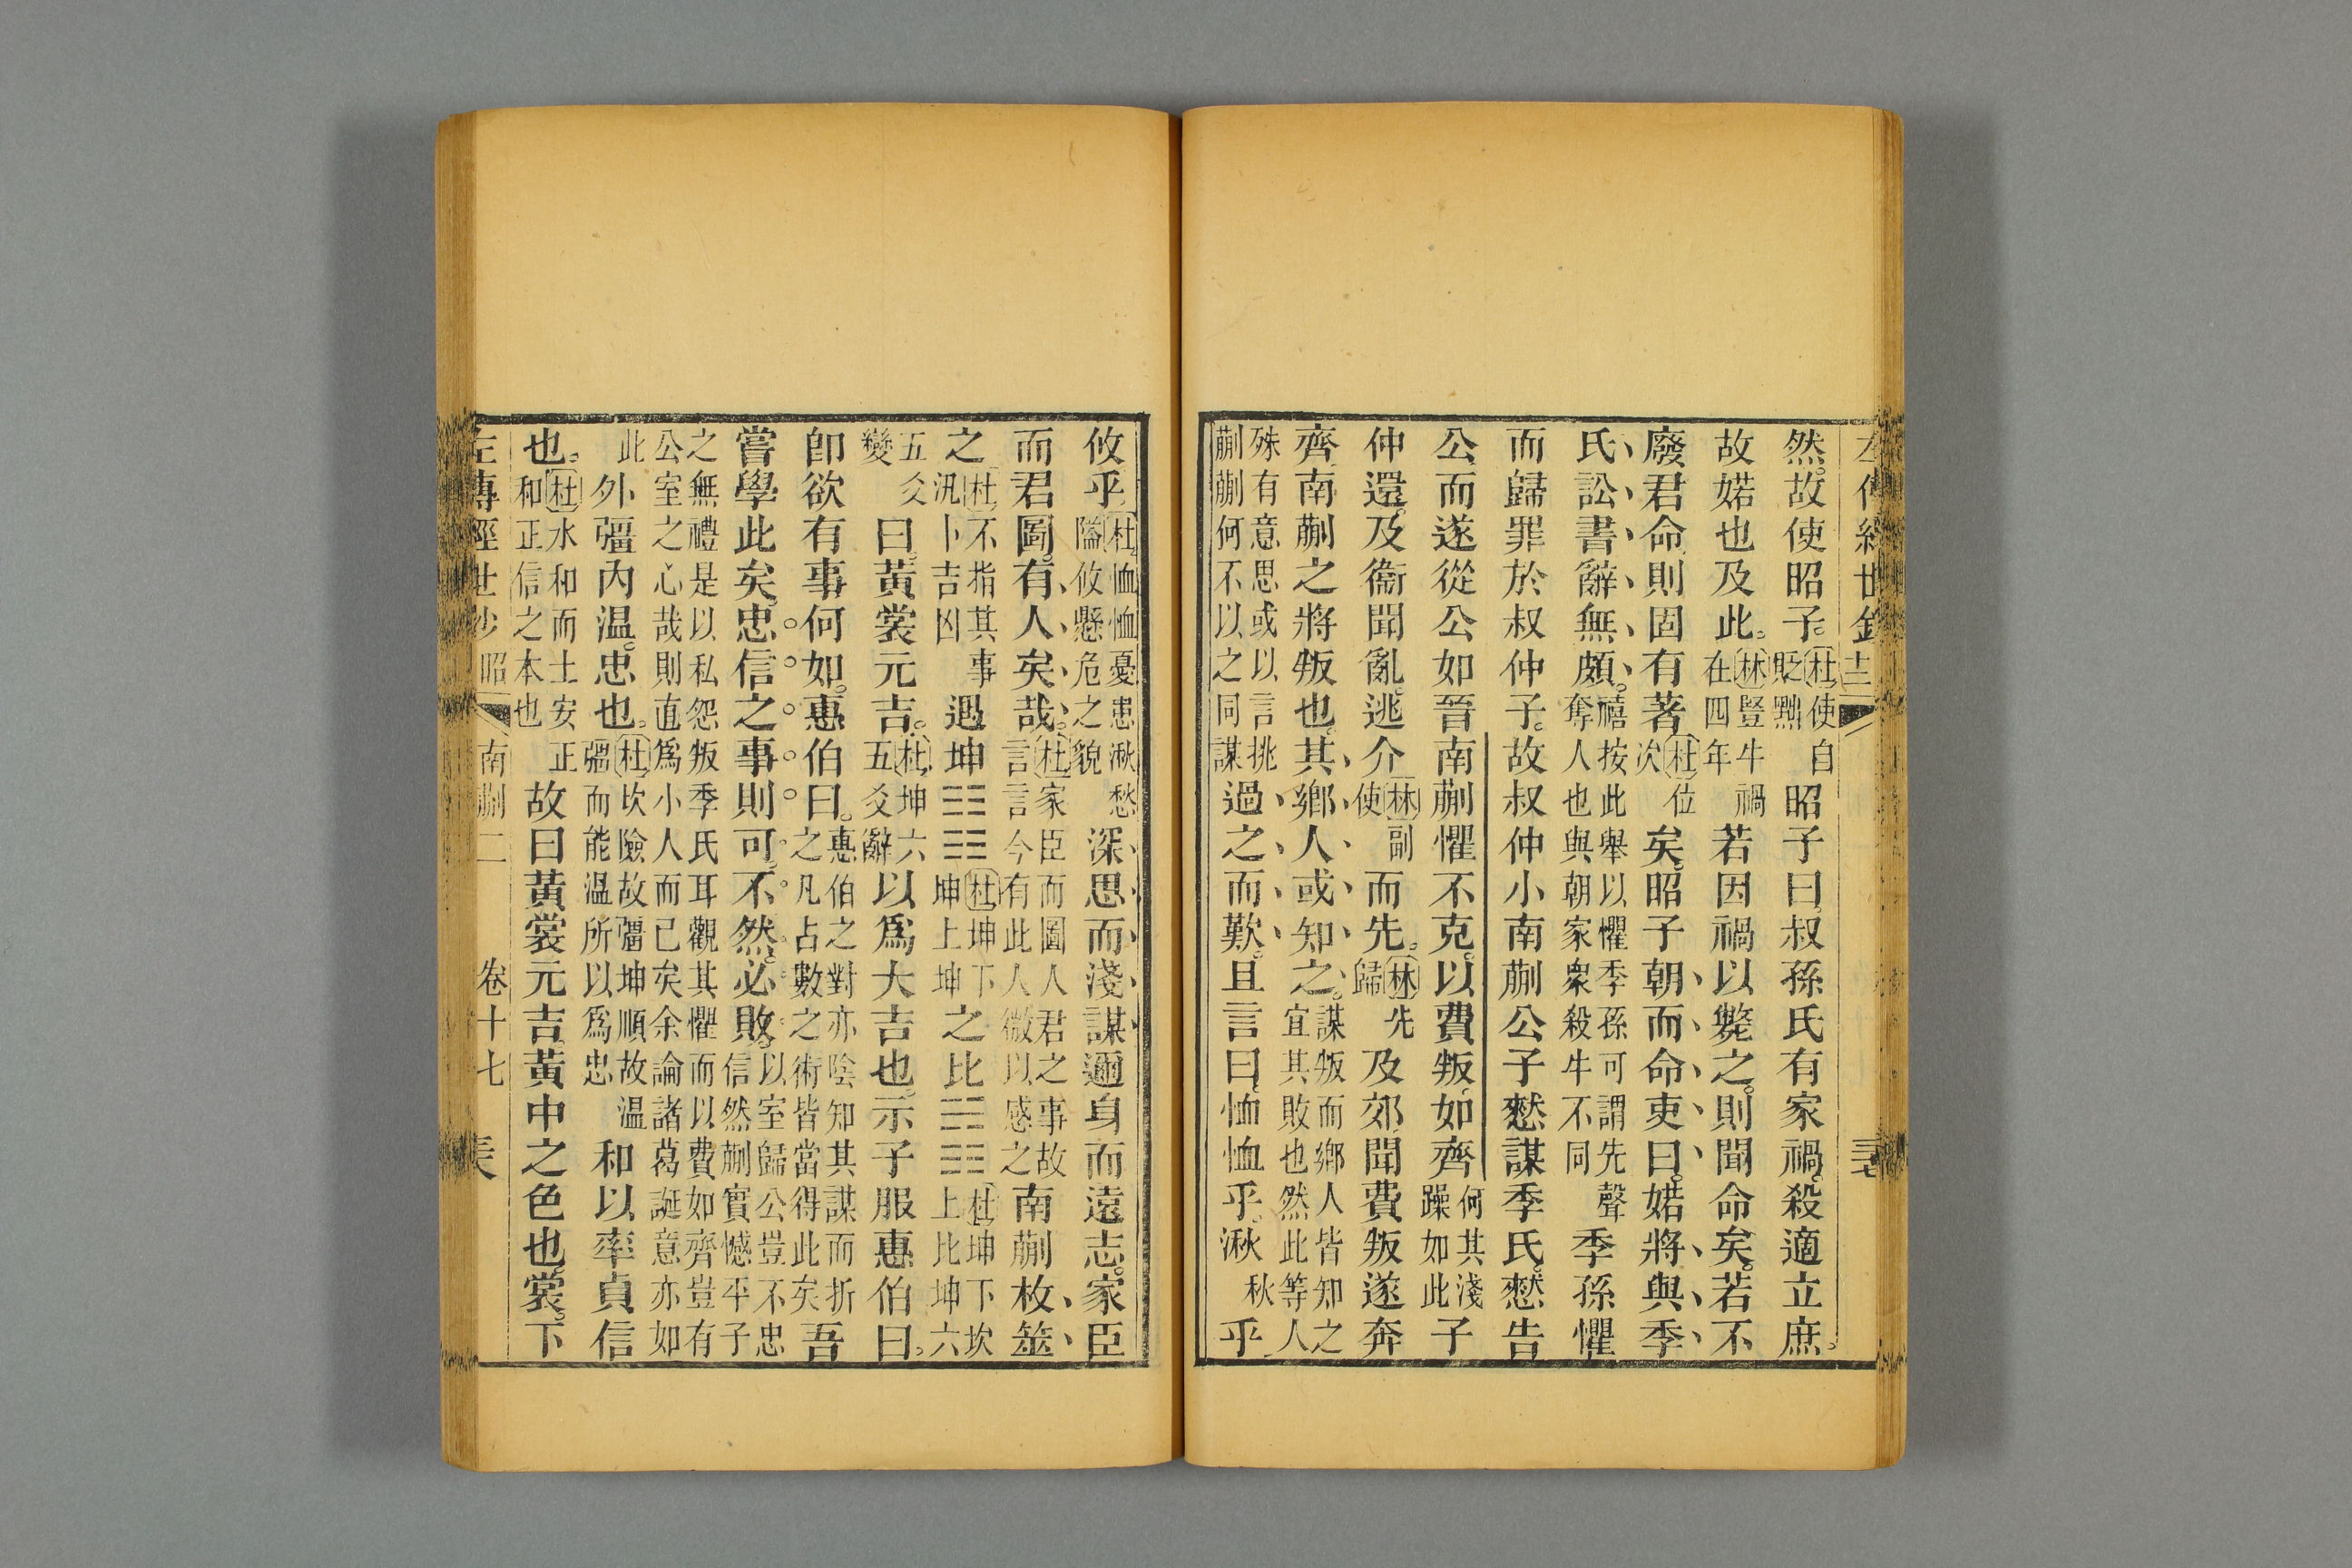 然故使昭子杜使自貶黜昭子曰叔孫氏有家禍殺適立庶
故婼也及此林豎牛禍在四年若因禍以斃之則聞命矣若不
廢君命則固有著杜位次矣昭子朝而命吏曰婼將與季
氏訟書辭無頗禧按此舉以懼季孫可謂先聲奪人也與朝家衆殺牛不同季孫懼
而歸罪於叔仲子故叔仲小南蒯公子憖謀季氏憖告
公而遂從公如晉南蒯懼不克以費叛如齊何其淺躁如此子
仲還及衞聞亂逃介林副使而先林先歸及郊聞費叛遂奔
齊南蒯之將叛也其鄉人或知之謀叛而鄉人皆知之宜其敗也然此等人
殊有意思或以言挑蒯蒯何不以之同謀過之而歎且言曰恤恤乎湫秋乎
攸乎杜恤恤憂患湫愁隘攸懸危之貌深思而淺謀邇身而遠志家臣
而君圖有人矣哉杜家臣而圖人君之事故言言今有此人微以感之南蒯枚筮
之杜不指其事汎卜吉凶遇坤☷☷杜坤下坤上坤之比☵☷杜坤下坎上比坤六
五爻變曰黃裳元吉杜坤六五爻辭以爲大吉也示子服惠伯曰
卽欲有事何如惠伯曰惠伯之對亦陰知其謀而折之凡占數之術皆當得此矣吾
嘗學此矣忠信之事則可不然必敗以室歸公豈不忠信然蒯實憾平子
之無禮是以私怨叛季氏耳觀其懼而以費如齊豈有公室之心哉則直爲小人而已矣余論諸葛誕意亦如
此外彊內温忠也杜坎險故彊坤順故温彊而能温所以爲忠和以率貞信
也杜水和而土安正和正信之本也故曰黃裳元吉黃中之色也裳下
左傳經世鈔 昭 南蒯二 卷十七